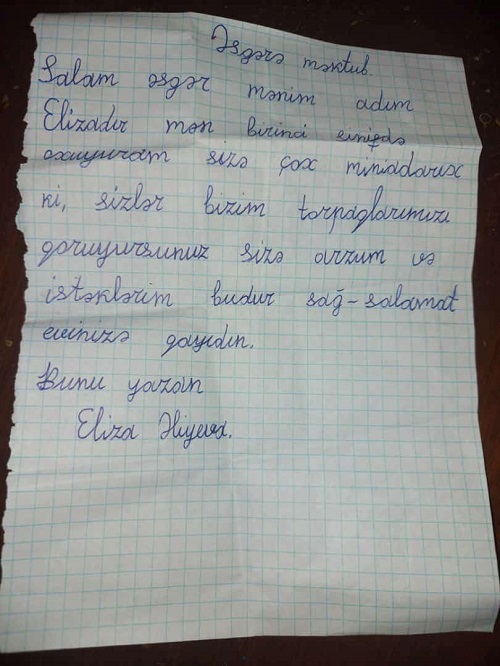 Əsgərə məktub.
Salam əsgər mənim adım
Elizadır mən birinci sinifdə
oxuyuram sizə çox miniadarıx
ki, sizlər bizim torpaglarımızı
goruyursunuz sizə arzum və
istəklərim budur sağ-salamat
evinizə gayıdın.
Bunu yazan
Eliza Əliyeva.